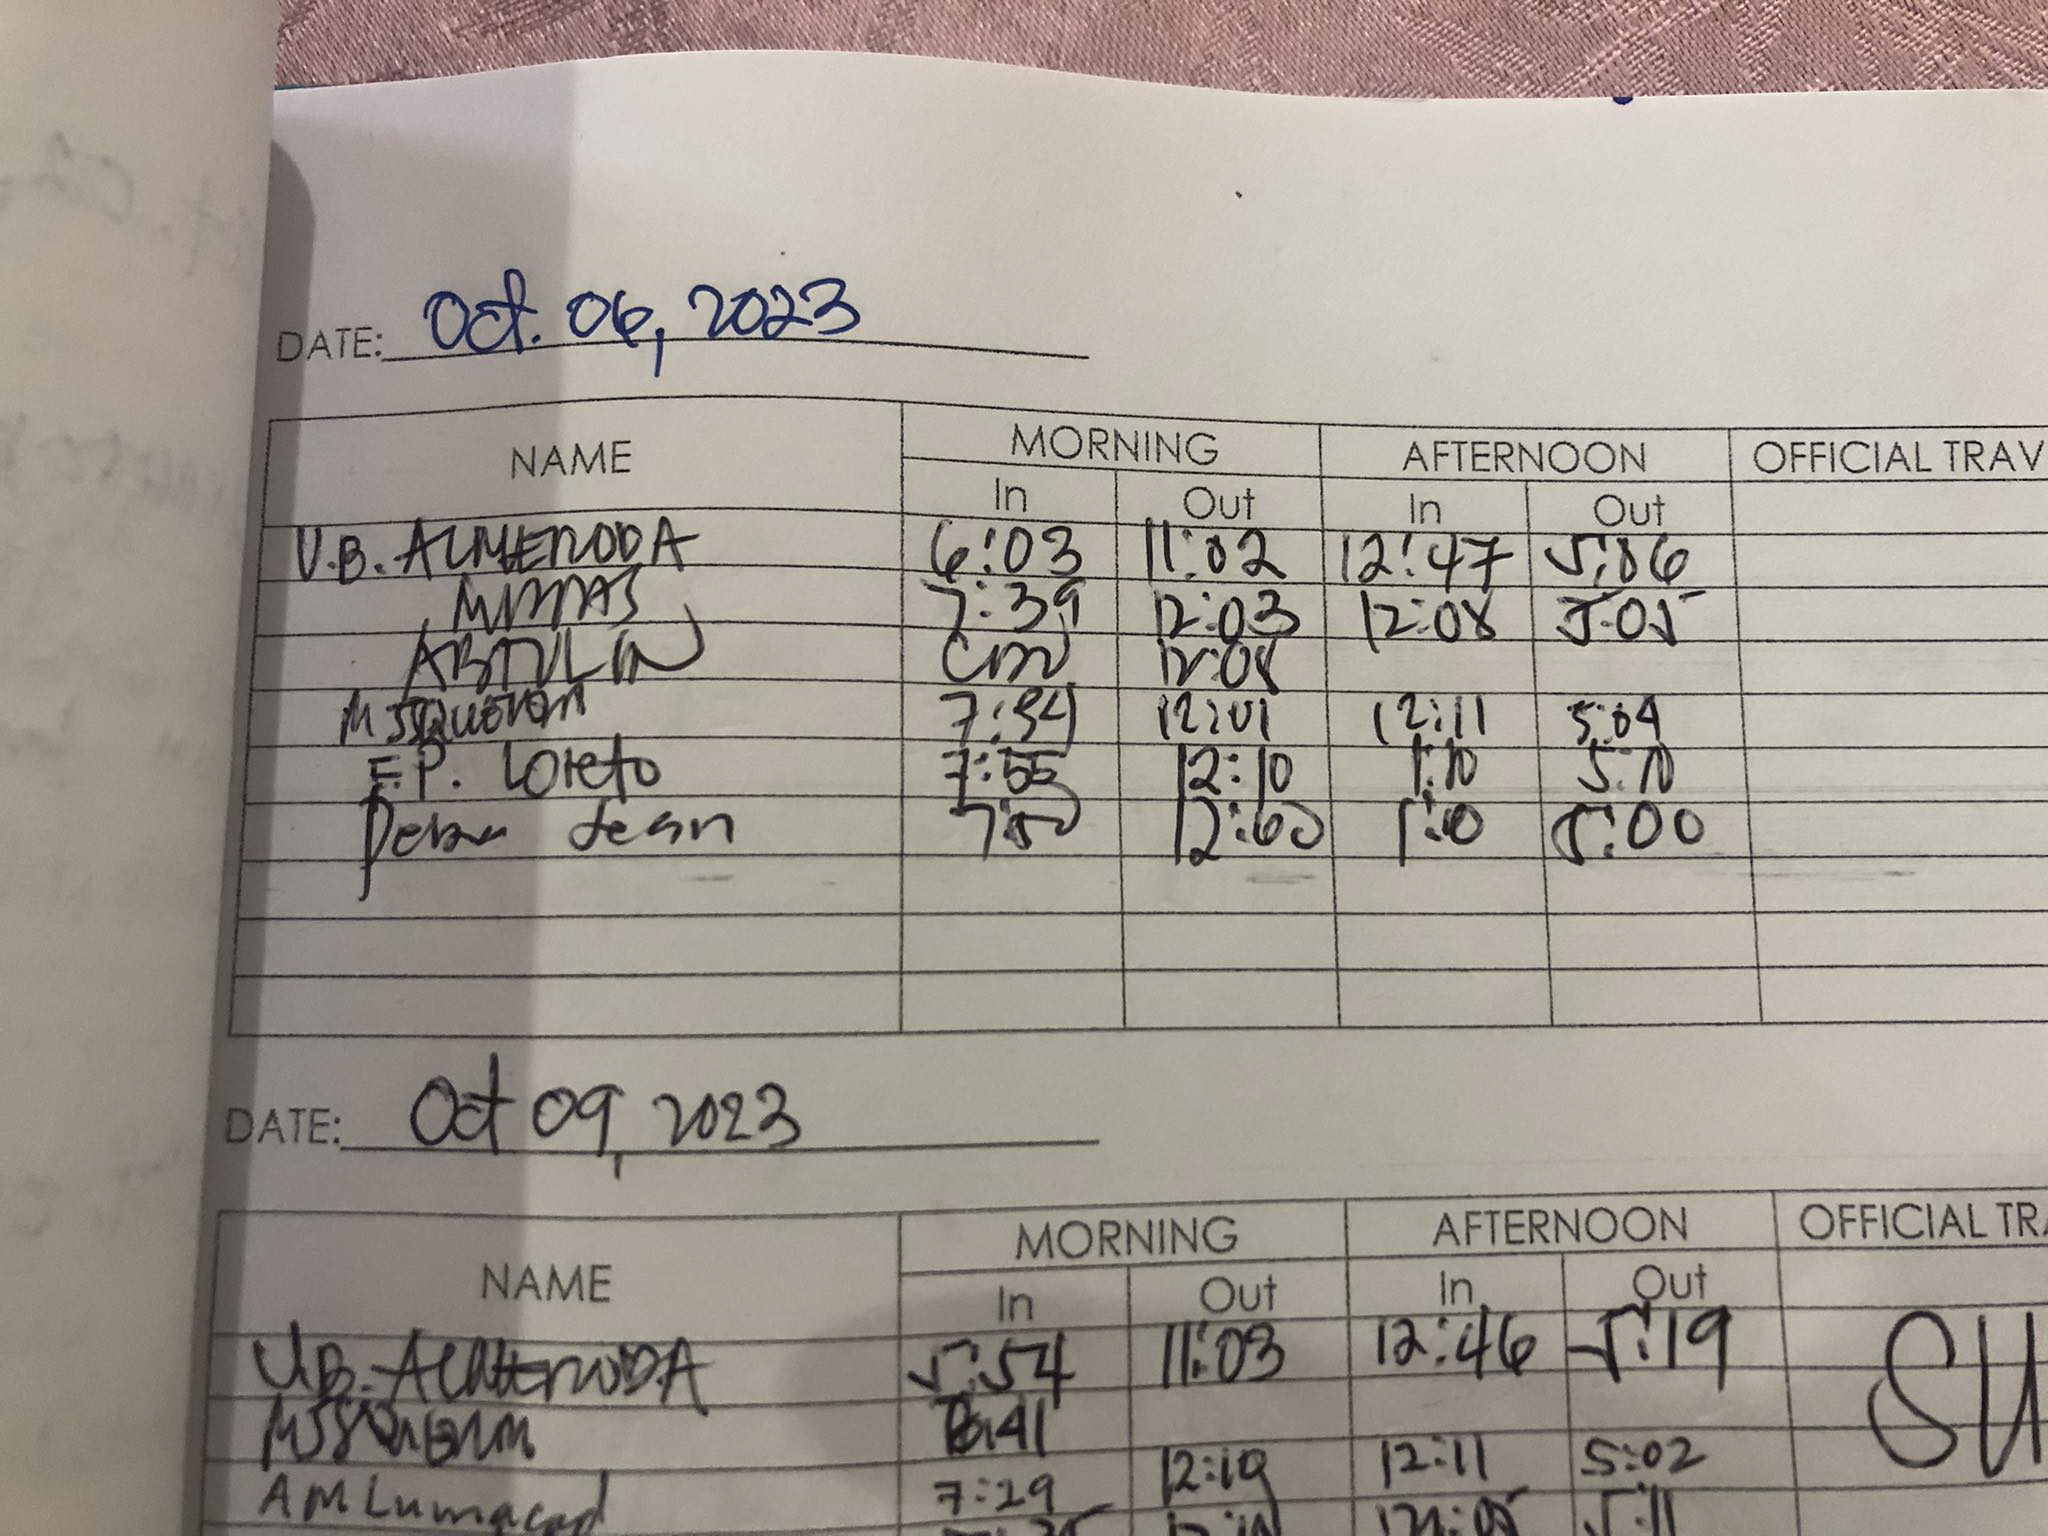 DATE: Oct. 06, 2023
NAME MORNING AFTERNOON OFFICIAL TRAV
In Out In Out
U.B. ALMENODA 6:03 11:02 12:47 5:06
7:39 12:03 12:08 5:05
ABTULIN 12:08
7:54 12:01 12:11 5:04
F.P. Loreto 7:55 12:10 1:10 5:10
7:50 12:00 1:10 5:00
DATE: Oct 09, 2023
NAME MORNING AFTERNOON OFFICIAL TRA
In Out In Out
U.B. ALMENODA 5:54 11:03 12:46 5:19 SU
6:41
AM Lumacad 7:29 12:10 12:11 5:02
12:05 5:11